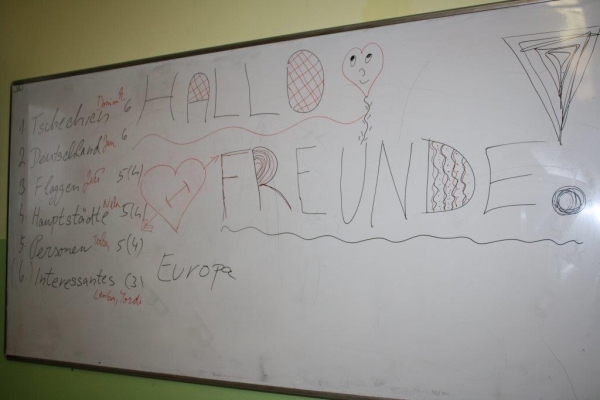 HALLO
FREUNDE.
1 Tschechien 6
2 Deutschland Jan 6
3 Flaggen 5(4)
4 Hauptstädte Nela 5(4)
5 Personen 5(4)
6 Interessantes (3)
Europa